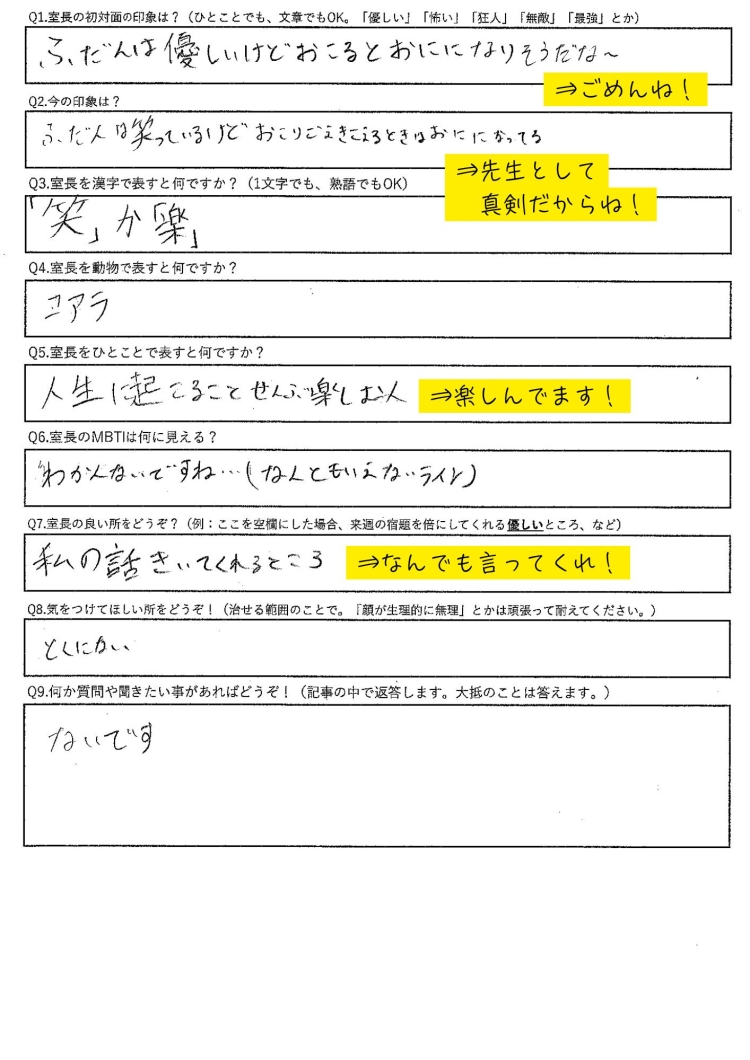 Q1.室長の初対面の印象は？（ひとことでも、文章でもOK。「優しい」「怖い」「狂人」「無敵」「最強」とか）
ふだんは優しいけどおこるとおにになりそうだな〜
⇒ごめんね！
Q2.今の印象は？
ふだん人は笑っているけどおこりごえきこえるときはおにになってる
⇒先生として
真剣だからね！
Q3.室長を漢字で表すと何ですか？（1文字でも、熟語でもOK）
「笑」か「楽」
Q4.室長を動物で表すと何ですか？
コアラ
Q5.室長をひとことで表すと何ですか？
人生に起こることぜんぶ楽しむ人
⇒楽しんでます！
Q6.室長のMBTIは何に見える？
わかんないですね…(なんともいえないライン)
Q7.室長の良い所をどうぞ？（例：ここを空欄にした場合、来週の宿題を倍にしてくれる優しいところ、など）
私の話きいてくれるところ
⇒なんでも言ってくれ！
Q8.気をつけてほしい所をどうぞ！（治せる範囲のことで。『顔が生理的に無理』とかは頑張って耐えてください。）
とくにない
Q9.何か質問や聞きたい事があればどうぞ！（記事の中で返答します。大抵のことは答えます。）
ないです